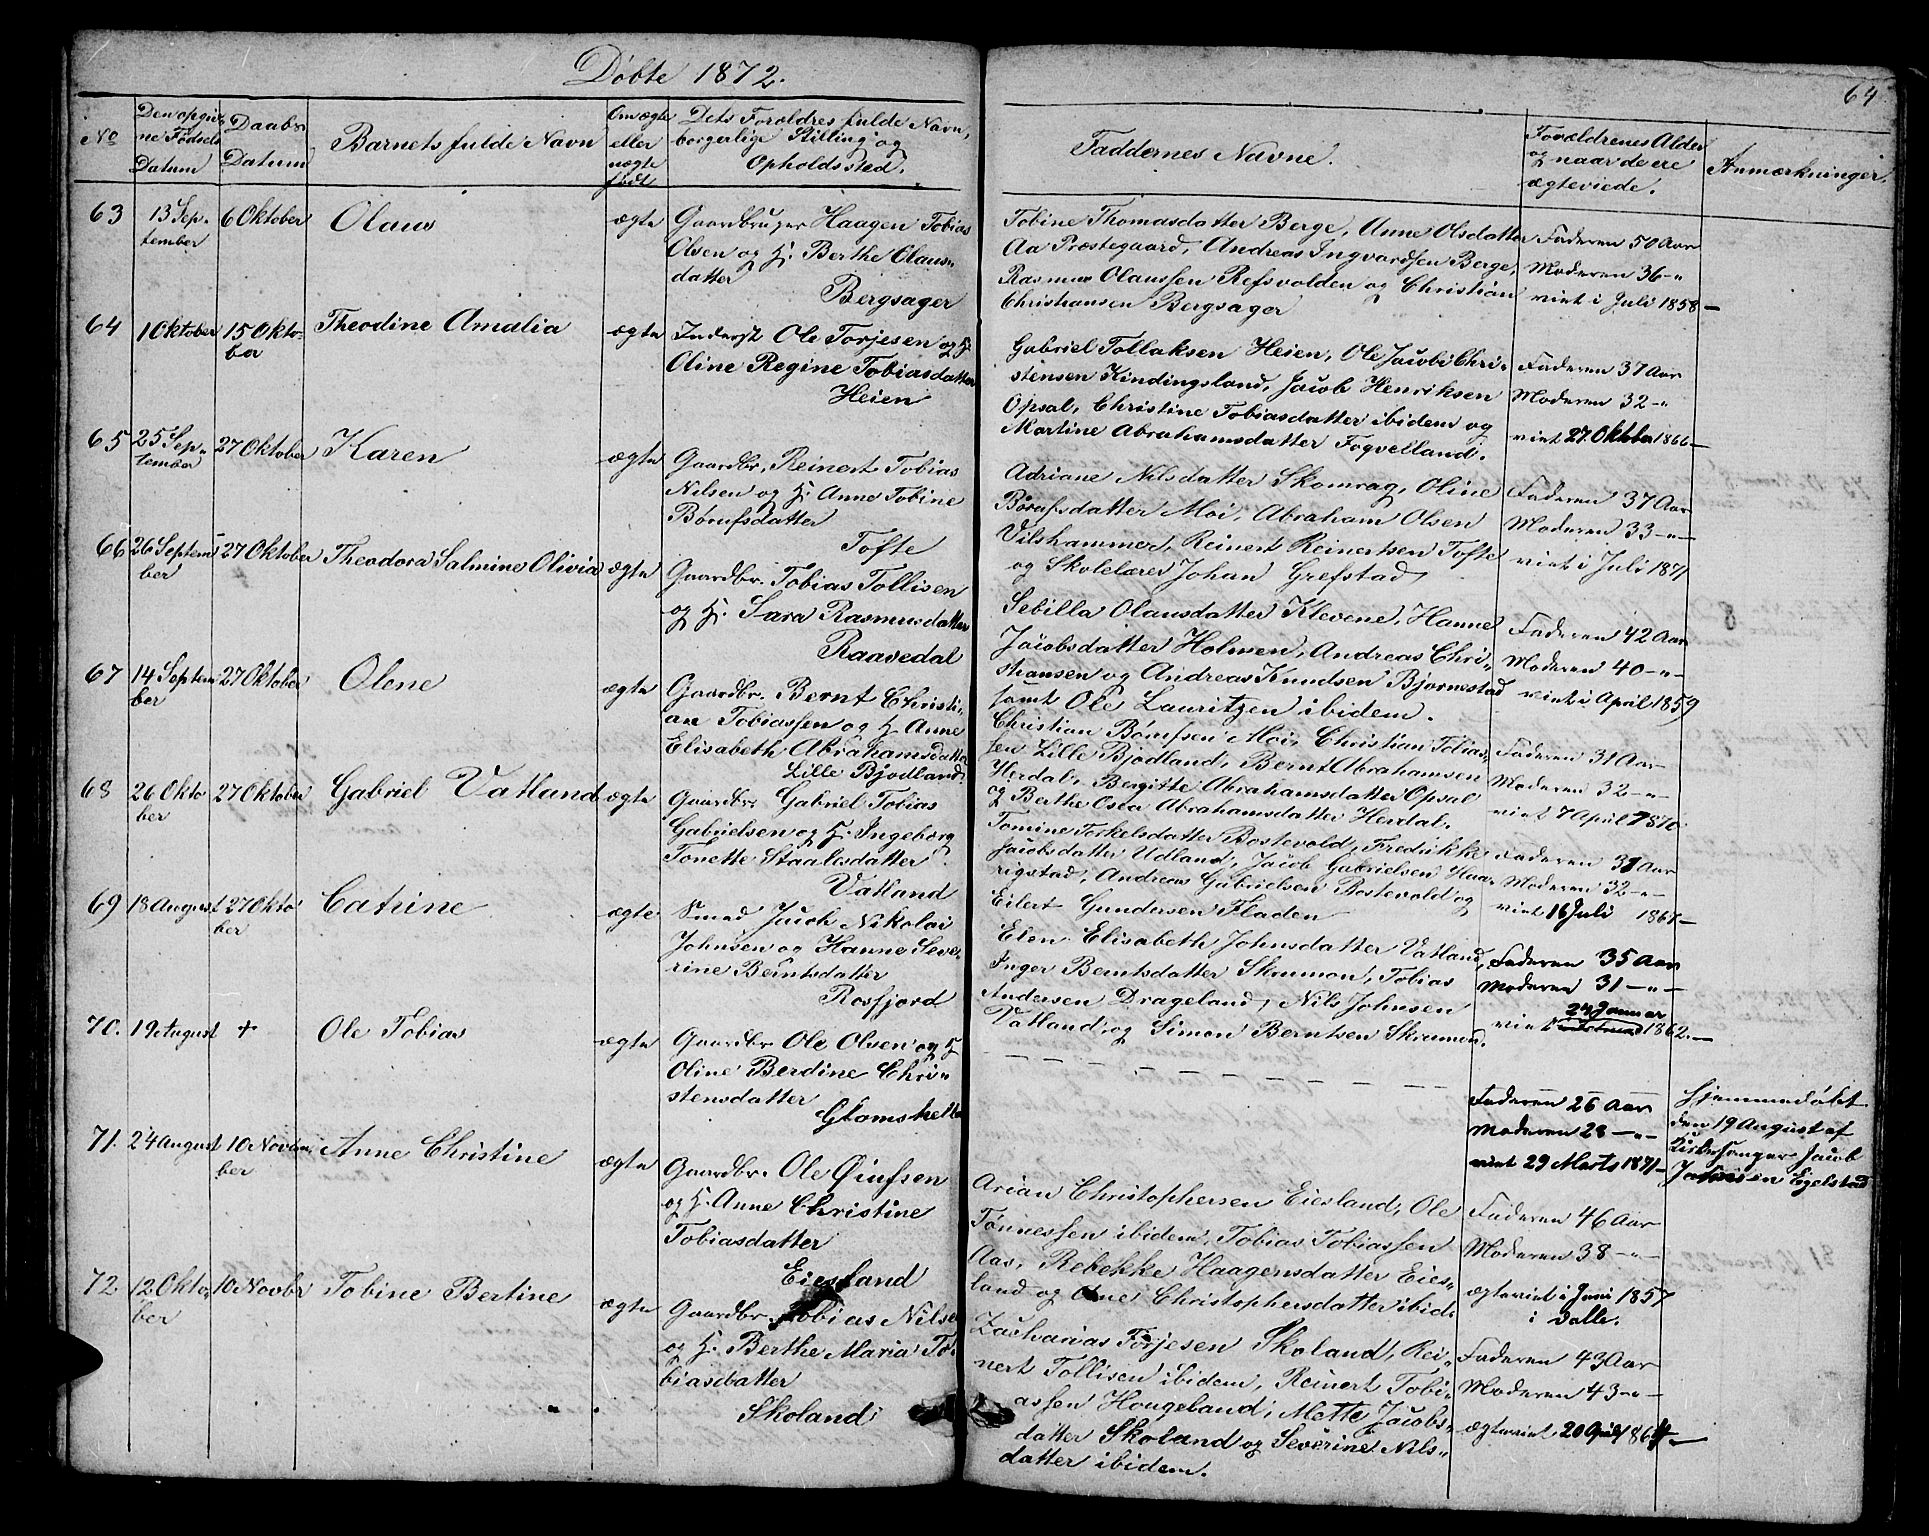 Døbte 1872.
64
No
Den opgiv=
ne Fødsels
Datum
Daabs
Datum
Barnets fulde Navn
Om ægte
eller
uægte
født
Dets Forældres fulde Navn,
borgerlige Stilling og
Opholdssted.
Faddernes Navne.
Forældrenes Alder
og naar de ere
ægteviede.
Anmærkninger.
63
13 Sep.
tember
6 Oktober
Olaus
ægte
Gaardbruger Haagen Tobias
Olsen og H. Berthe Olaus=
datter
Bergsager
Tobine Thomasdatter Berge, Anne Olsdatter
Aa Præstegaard, Andreas Ingvardsen Berge,
Rasmus Olaussen Refsvolden og Christian
Christiansen Bergsager
Faderen 50 Aar
Moderen 36 - "
viet i Juli 1858 -
64
1 Oktober
15 Okto-
ber
Theodine Amalia
ægte
Inderst Ole Torjesen og H.
Oline Regine Tobiasdatter
Heien
Gabriel Tollaksen Heien, Ole Jacobi Chri=
stensen Kindingsland, Jacob Henriksen
Opsal, Christine Tobiasdatter ibidem og
Martine Abrahamsdatter Fogvelland.
Faderen 37 Aar
Moderen 32 - "
viet 27. Oktober 1866 -
65
25 Sep=
tember
27 Oktober
Karen
ægte
Gaardbr. Reinert Tobias
Nilsen og H. Anne Tobine
Børufsdatter
Tofte
Adriane Nilsdatter Skomrag, Oline
Børufsdatter Moi, Abraham Olsen
Vilshammer, Reinert Reinertsen Tofte
og Skolelærer Johan Grefstad
Faderen 37 Aar
Moderen 33 - " -
viet i Juli 1871
66
26 Septem=
ber
27 Oktober
Theodora Salmine Olivia
ægte
Gaardbr. Tobias Tollisen
og H. Sara Rasmusdatter
Raavedal
Sebilla Olausdatter Klevene, Hanne
Jacobsdatter Holmen, Andreas Chri=
stiansen og Andreas Knudsen Bjørnestad
samt Ole Lauritzen ibidem.
Faderen 42 Aar
Moderen 40 - " -
viet i April 1859
67
14 Septem
ber
27 Oktober
Olene
ægte
Gaardbr. Bernt Christi=
an Tobiassen og H. Anne
Elisabeth Abrahamsdatter
Lille Bjødland.
Christian Børufsen Moi, Christian Tobias=
sen Lille Bjødland, Bernt Abrahamsen
Herdal, Bergitte Abrahamsdatter Opsal
og Berthe Osea Abrahamsdatter Herdal.
Faderen 31 Aar
Moderen 32 - " -
viet 7 April 1870
68
26 Okto
ber
27 Oktober
Gabriel Vatland
ægte
Gaardbr. Gabriel Tobias
Gabrielsen og H. Ingeborg
Tonette Staalesdatter
Vatland
Tomine Torkelsdatter Bostevold, Fredrikke
Jacobsdatter Udland, Jacob Gabrielsen Haa=
rigstad, Andreas Gabrielsen Bostevold og
Eilert Gundersen Fladen
Faderen 31 Aar
Moderen 32 - " -
viet 16 Juli 1867 -
69
18 August
27 Okto
ber
Catrine
ægte
Smed Jacob Nikolai
Johnsen og Hanne Seve=
rine Berntsdatter
Rosfjord
Elen Elisabeth Johnsdatter Vatland,
Inger Berntsdatter Skrumon, Tobias
Andersen Drageland, Nils Johnsen
Vatland og Simon Berntsen Skrumon.
Faderen 35 Aar
Moderen 31 - " -
24 Januar
viet 1862. -
70.
19 August
+
Ole Tobias
ægte
Gaardbr. Ole Olsen og H.
Oline Berdine Chri=
stensdatter
Glomshelle
Faderen 26 Aar
Moderen 28 - " -
viet 29 Marts 1871 -
Hjemmedøbt
den 19 August af
Kirkesanger Jacob
Egelstad
71.
24 August
10 Novem
ber
Anne Christine
ægte
Gaardbr. Ole Øiufsen
og H. Anne Christine
Tobiasdatter
Eiesland
Arian Christophersen Eiesland, Ole
Tønnessen ibidem, Tobias Tobiassen
Aas, Rebekke Haagensdatter Eies=
land og Ane Christophersdatter ibid.
Faderen 46 Aar
Moderen 38 - " -
ægteviet i Juni 1857
i Valle.
72
12 Okto
ber
10 Novbr
Tobine Bertine
ægte
Gaardbr. Tobias Nilsen
og H. Berthe Maria To=
biasdatter
Skoland
Zacharias Torjesen Skoland, Rei=
nert Tollisen ibidem, Reinert Tobi=
assen Hougeland, Mette Jacobs=
datter Skoland og Severine Nils=
datter ibidem.
Faderen 43 Aar
Moderen 43 - " -
ægteviet 20 April 1864 -